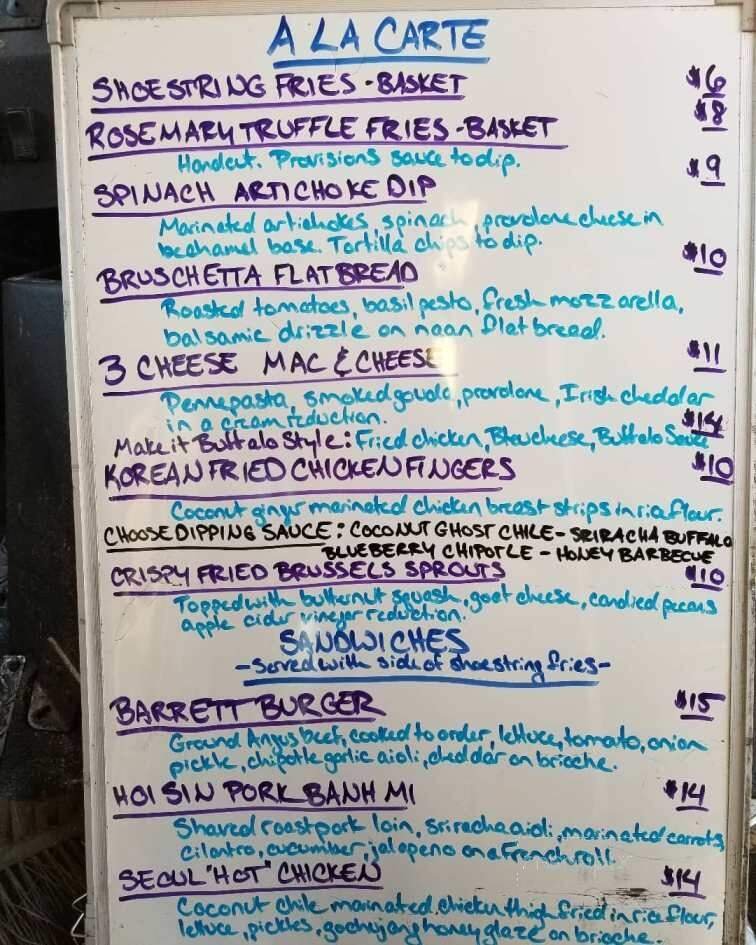 A LA CARTE
SHOESTRING FRIES - BASKET $6
ROSEMARY TRUFFLE FRIES - BASKET $8
Handcut. Provisions sauce to dip.
SPINACH ARTICHOKE DIP $9
Marinated artichokes, spinach, provolone cheese in
bechamel base. Tortilla chips to dip.
BRUSCHETTA FLATBREAD $10
Roasted tomatoes, basil pesto, fresh mozzarella,
balsamic drizzle on naan flat bread.
3 CHEESE MAC & CHEESE $11
Penne pasta, smoked gouda, provolone, Irish cheddar
in a cream reduction.
Make it Buffalo Style: Fried chicken, Bleu cheese, Buffalo Sauce $14
KOREAN FRIED CHICKEN FINGERS $10
Coconut ginger marinated chicken breast strips in rice flour.
CHOOSE DIPPING SAUCE: COCONUT GHOST CHILE - SRIRACHA BUFFALO
BLUEBERRY CHIPOTLE - HONEY BARBECUE
CRISPY FRIED BRUSSELS SPROUTS $10
Topped with butternut squash, goat cheese, candied pecans
apple cider vinegar reduction.
SANDWICHES
- Served with side of shoestring fries -
BARRETT BURGER $15
Ground Angus beef, cooked to order, lettuce, tomato, onion
pickle, chipotle garlic aioli, cheddar on brioche.
HOISIN PORK BANH MI $14
Shaved roast pork loin, sriracha aioli, marinated carrots,
cilantro, cucumber, jalapeno on a French roll.
SEOUL "HOT" CHICKEN $14
Coconut chile marinated chicken thigh fried in rice flour,
lettuce, pickles, gochujang honey glaze on brioche.